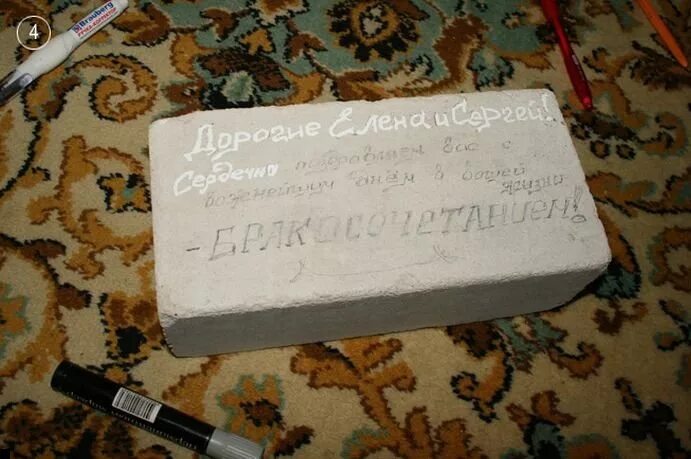 4
Brauberg
Дорогие Елена и Сергей!
Сердечно поздравляем вас с
важнейшим днём в вашей
жизни
- БРАКОСОЧЕТАНИЕМ!